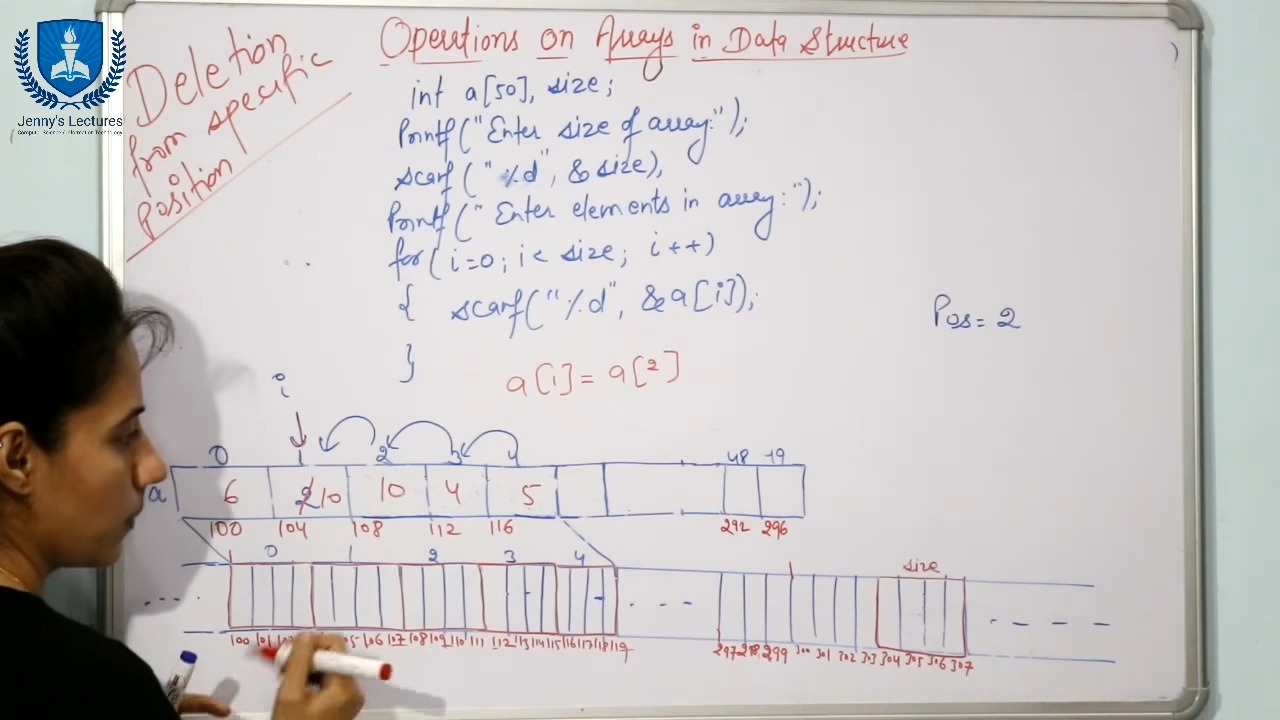 Jenny's Lectures
Computer Science/Information Technology
Deletion
from specific
position
Operations on Arrays in Data Structure
int a[50], size;
Printf("Enter size of array:");
scanf("%d", & size),
Printf("Enter elements in array:");
for(i=0; i< size; i++)
{ scanf("%d", &a[i]);
}
Pos= 2
a[1]= a[2]
i
0 1 2 3 4 48 49
a 6 2 10 10 4 5
100 104 108 112 116 292 296
0 1 2 3 4 size
100 101 106 107 108 109 110 111 112 113 114 115 116 117 118 119 297 298 299 300 301 302 303 304 305 306 307